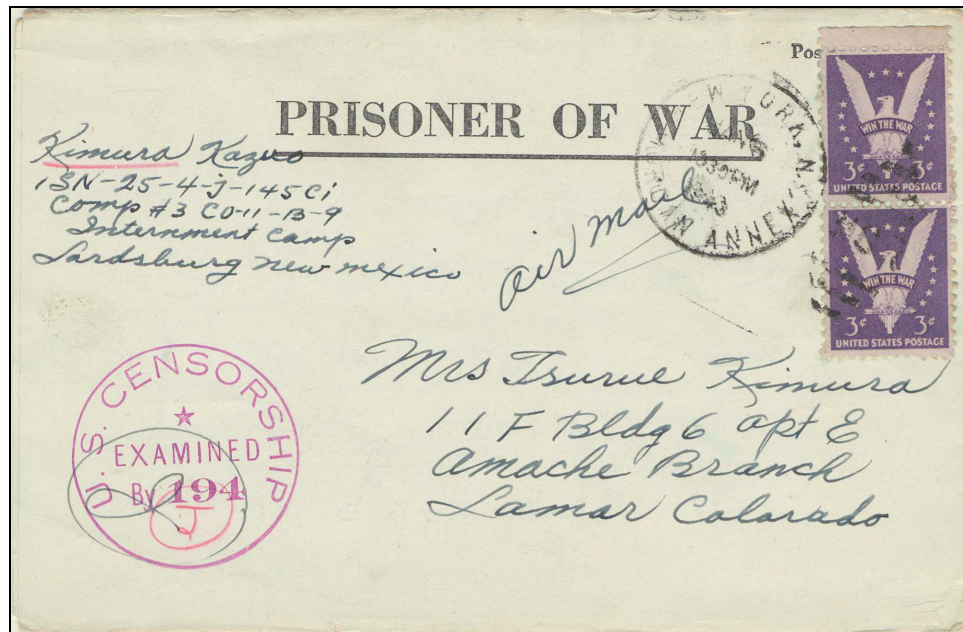 Pos
PRISONER OF WAR
Kimura Kazuo
ISN-25-4-J-145Ci
Comp #3 CO-11-B-9
Internment Camp
Lardsburg new mexico
air mail
NEW YORK, N.
30PM
1943
ANNEX
WIN THE WAR
3¢
UNITED STATES POSTAGE
WIN THE WAR
3¢ 3¢
UNITED STATES POSTAGE
Mrs Tsurue Kimura
11F Bldg 6 apt E
Amache Branch
Lamar Colorado
U.S. CENSORSHIP
EXAMINED
By 194
J